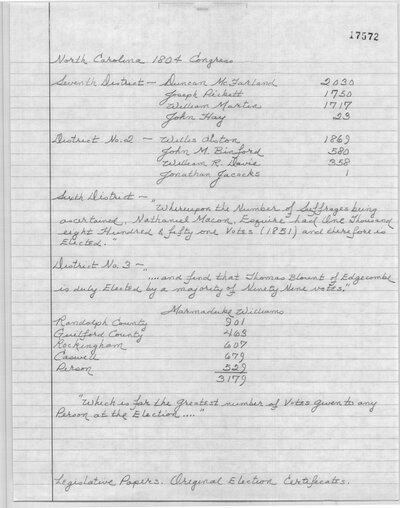 17572
North Carolina 1804 Congress
Seventh District - Duncan McFarland 2030
Joseph Pickett 1750
William Martin 1717
John Hay 23
District No. 2 - Willis Alston 1869
John M. Binford 580
William R. Davie 358
Jonathan Jacocks 1
Sixth District -
"Whereupon the Number of Suffrages being
ascertained, Nathaniel Macon, Esquire had One Thousand
eight Hundred & fifty one Votes (1851) and therefore is
Elected."
District No. 3 -
"....and find that Thomas Blount of Edgecombe
is duly Elected by a majority of Ninety Nine votes."
Marmaduke Williams
Randolph County 901
Guilford County 463
Rockingham 607
Caswell 679
Person 529
3179
"Which is far the greatest number of Votes given to any
Person at the Election ...."
Legislative Papers. Original Election Certificates.